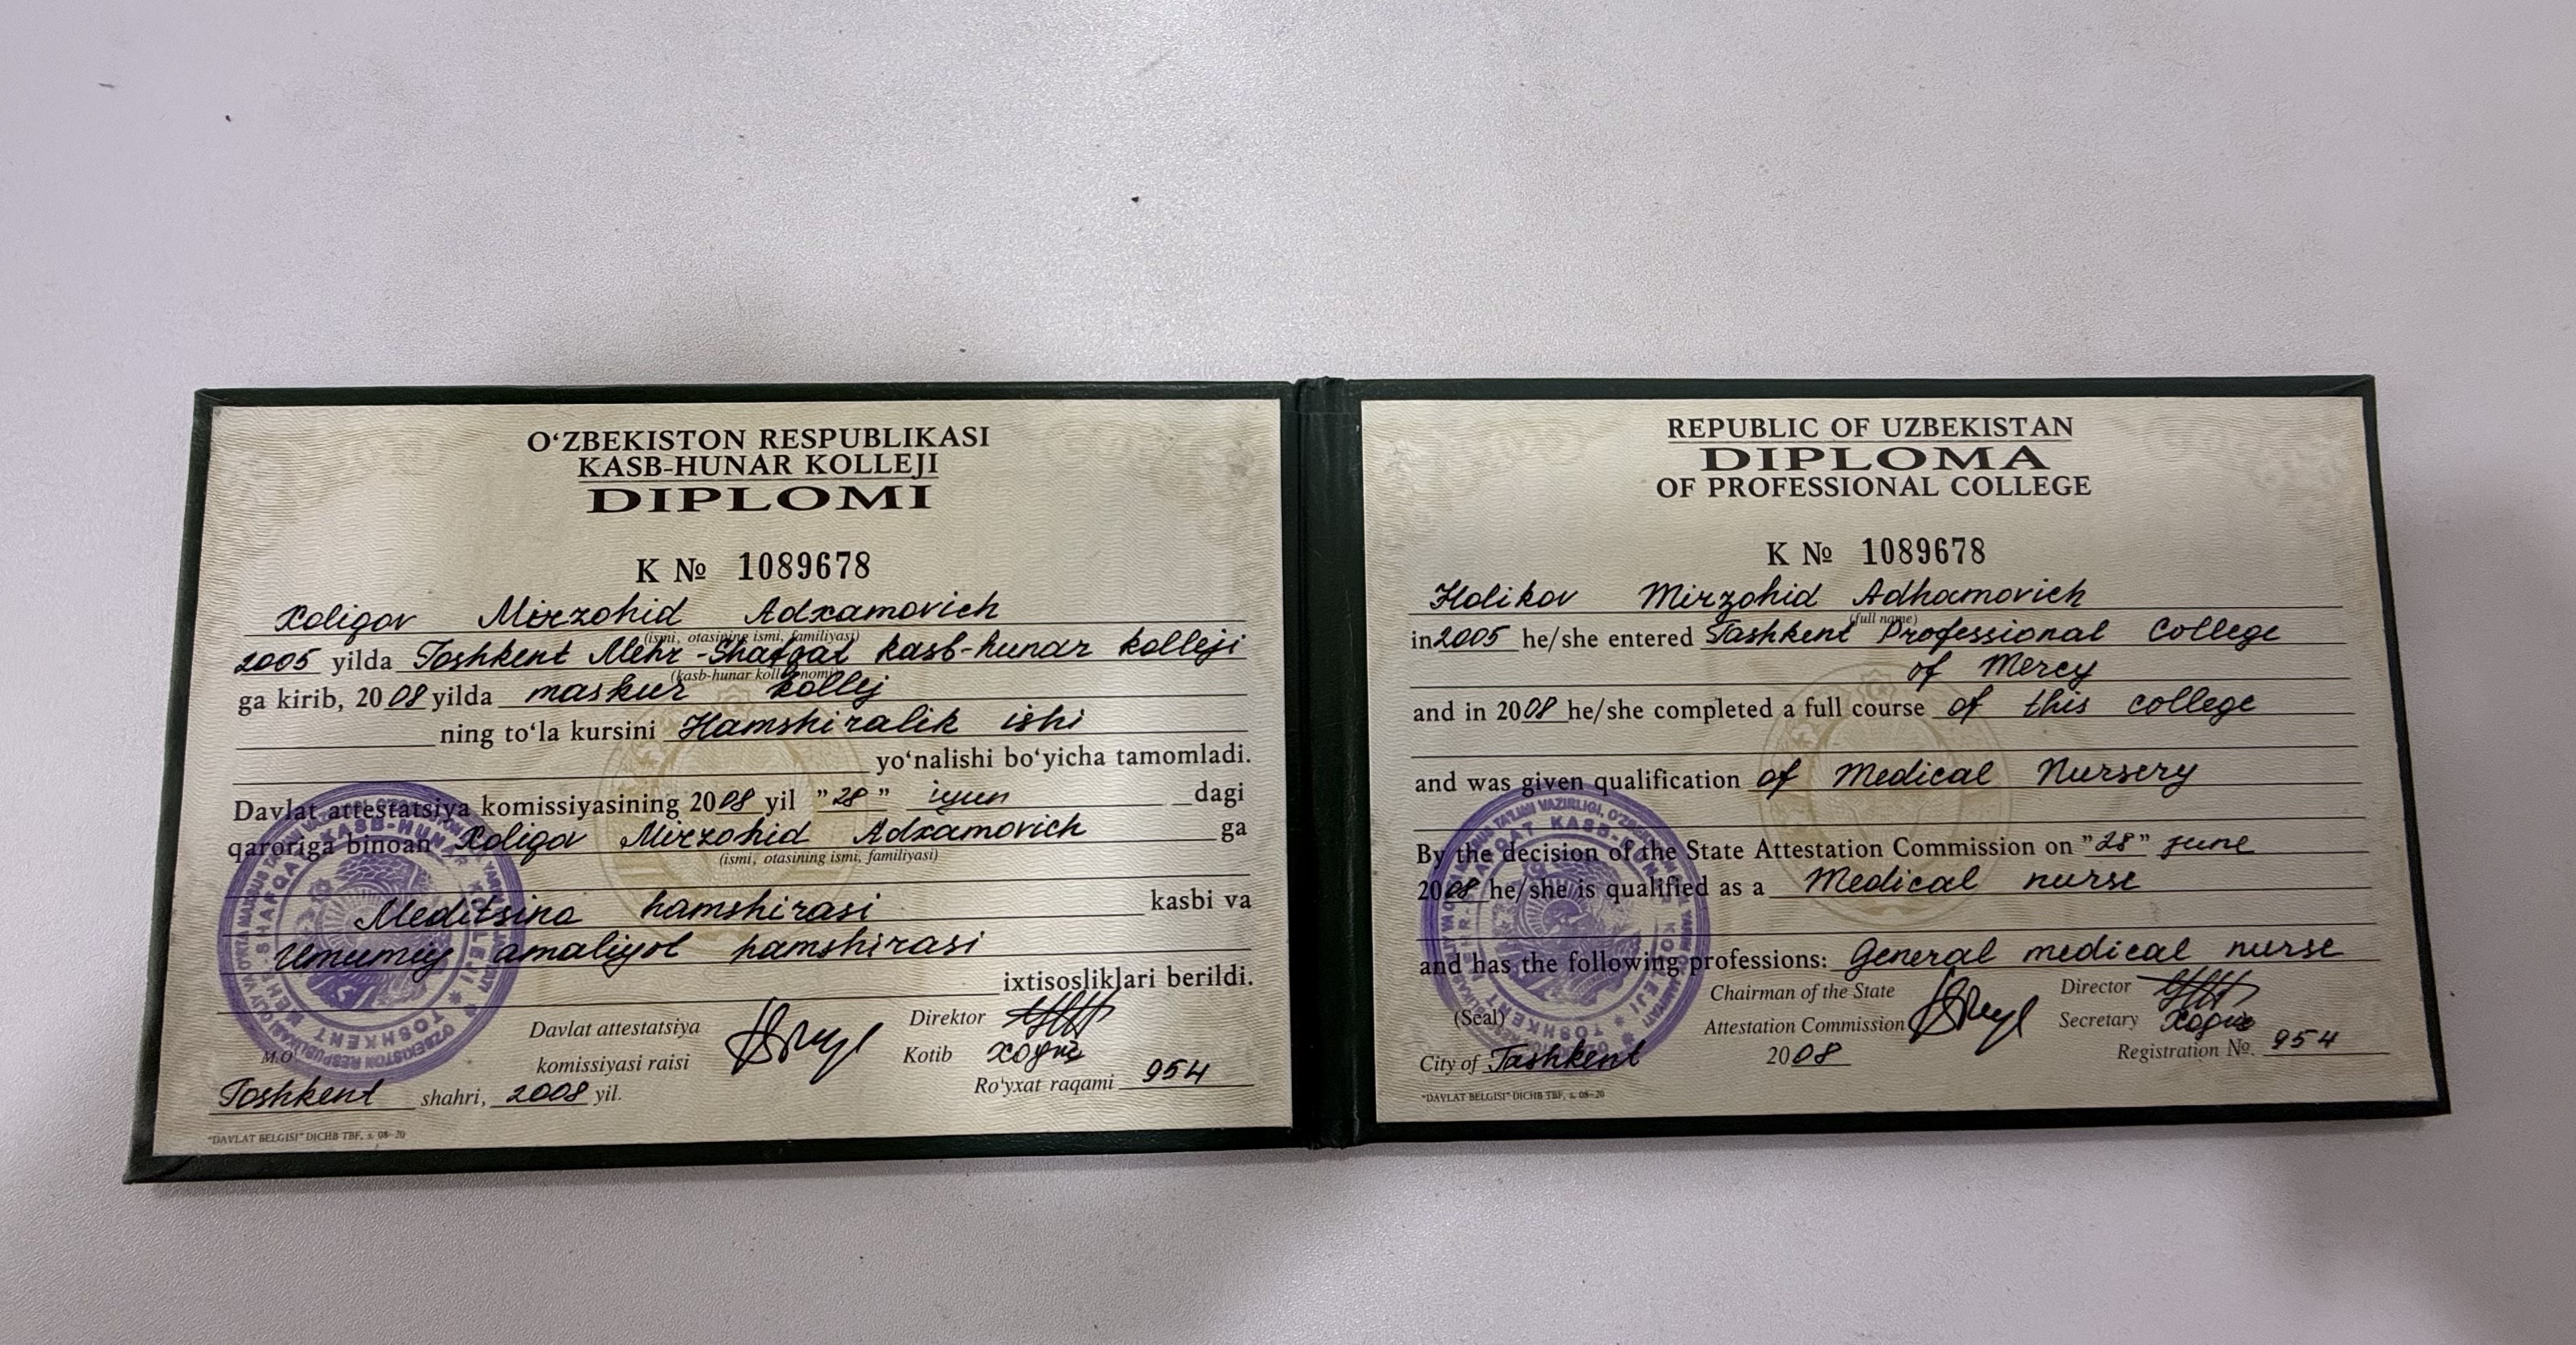 O‘ZBEKISTON RESPUBLIKASI
KASB-HUNAR KOLLEJI
DIPLOMI
K № 1089678
Xoliqov Mirzohid Adxamovich
(ismi, otasining ismi, familiyasi)
2005 yilda Toshkent Mehr-Shafqat kasb-hunar kolleji
(kasb-hunar kolleji nomi)
ga kirib, 2008 yilda maskur kollej
ning to‘la kursini Hamshiralik ishi
yo‘nalishi bo‘yicha tamomladi.
Davlat attestatsiya komissiyasining 2008 yil "28" iyun dagi
qaroriga binoan Xoliqov Mirzohid Adxamovich ga
(ismi, otasining ismi, familiyasi)
Meditsina hamshirasi kasbi va
Umumiy amaliyot hamshirasi
ixtisosliklari berildi.
Davlat attestatsiya
komissiyasi raisi
Direktor
Kotib
M.O‘
Ro‘yxat raqami 954
Toshkent shahri, 2008 yil.
"DAVLAT BELGISI" DICHB TBF, s. 08–20
REPUBLIC OF UZBEKISTAN
DIPLOMA
OF PROFESSIONAL COLLEGE
K № 1089678
Holikov Mirzohid Adhamovich
(full name)
in 2005 he/she entered Tashkent Professional College
of Mercy
and in 2008 he/she completed a full course of this college
and was given qualification of Medical Nursery
By the decision of the State Attestation Commission on "28" june
2008 he/she is qualified as a Medical nurse
and has the following professions: General medical nurse
Chairman of the State
Attestation Commission
Director
Secretary
(Seal)
City of Tashkent 2008
Registration №. 954
"DAVLAT BELGISI" DICHB TBF, s. 08–20